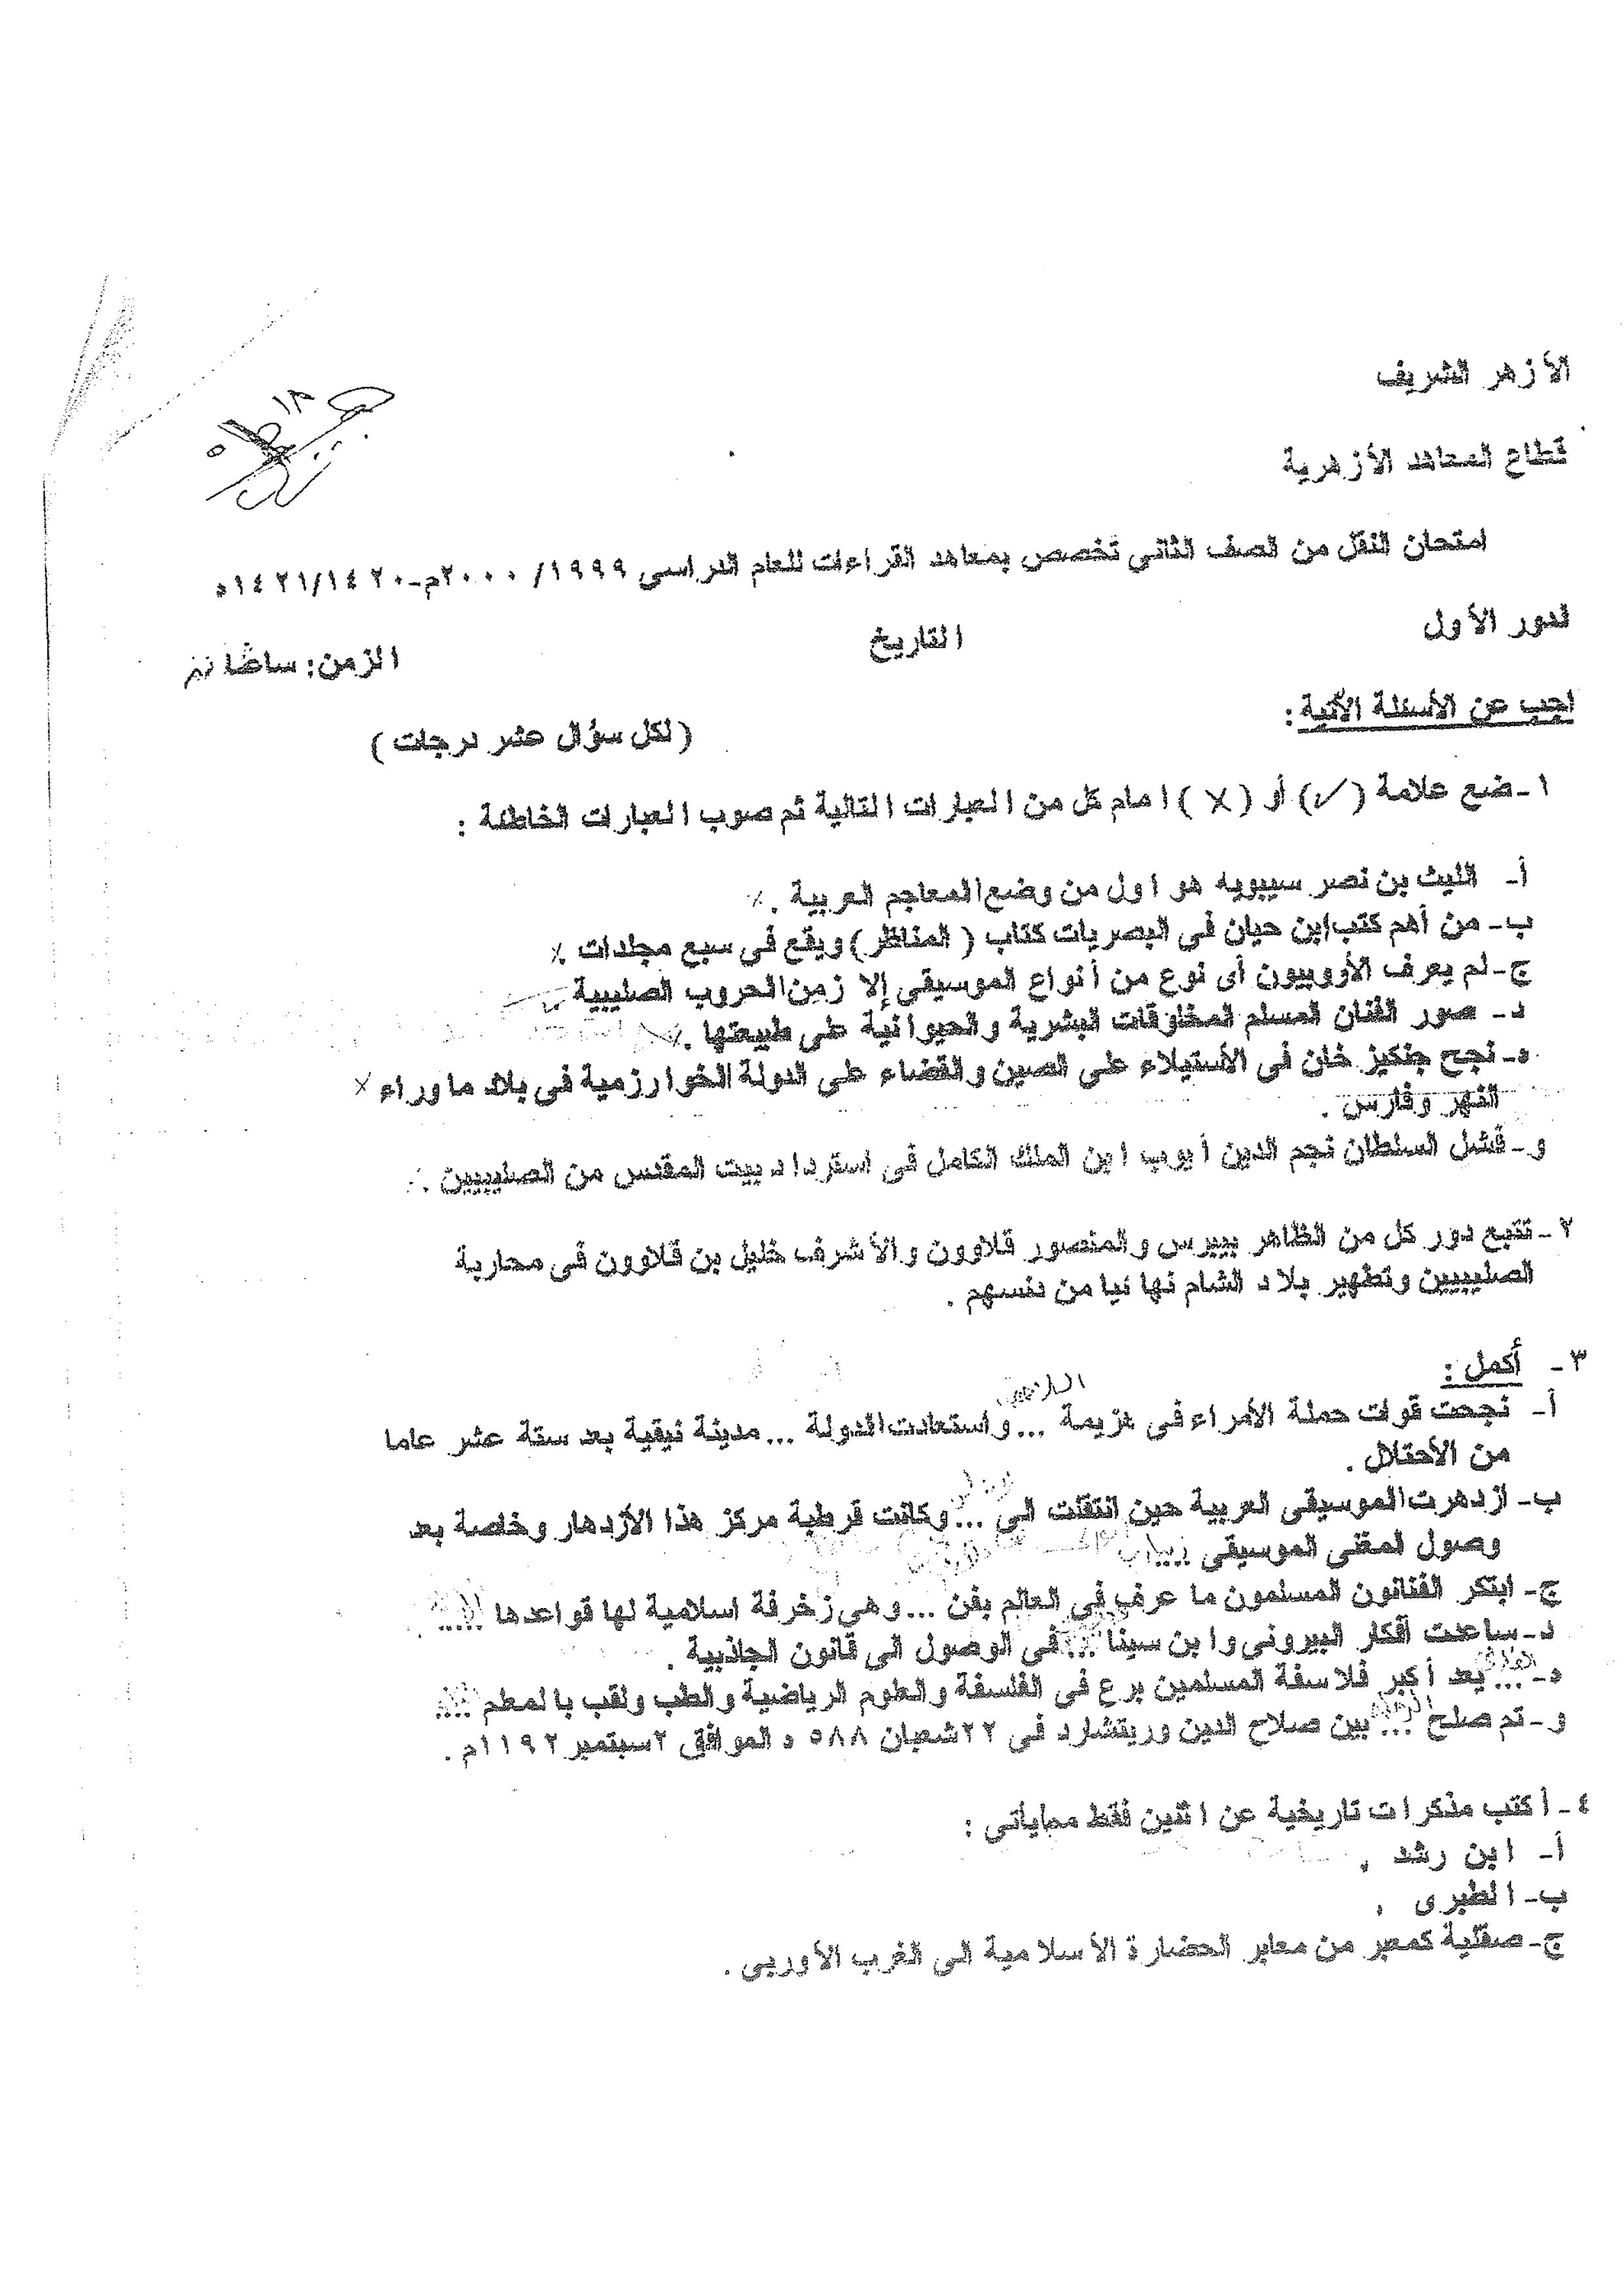 الأزهر الشريف
قطاع المعاهد الأزهرية
امتحان النقل من الصف الثاني تخصص بمعاهد القراءات للعام الدراسى ١٩٩٩/ ٢٠٠٠م-١٤٢١/١٤٢٠ه
لدور الأول
التاريخ
الزمن: ساعتان
اجب عن الأسئلة الآتية :
( لكل سؤال عشر درجات )
١- ضع علامة ( ✓ ) أو ( X ) امام كل من العبارات التالية ثم صوب العبارات الخاطئة :
أ- الليث بن نصر سيبويه هو اول من وضع المعاجم العربية . X
ب- من أهم كتب ابن حيان فى البصريات كتاب ( المناظر ) ويقع فى سبع مجلدات . X
ج- لم يعرف الأروبيون أى نوع من أنواع الموسيقى إلا زمن الحروب الصليبية
د- صور الفنان المسلم المخلوقات البشرية والحيوانية على طبيعتها .
ه- نجح جنكيز خان فى الأستيلاء على الصين والقضاء على الدولة الخوارزمية فى بلاد ماوراء X
النهر وفارس .
و- فشل السلطان نجم الدين أيوب ابن الملك الكامل فى استرداد بيت المقدس من الصليبيين .
٢- تتبع دور كل من الظاهر بيبرس والمنصور قلاوون والأشرف خليل بن قلاوون فى محاربة
الصليبيين وتطهير بلاد الشام نهائيا من دنسهم .
٣- أكمل :
أ- نجحت قوات حملة الأمراء فى هزيمة ... واستعادت الدولة ... مدينة نيقية بعد ستة عشر عاما
من الأحتلال .
ب- ازدهرت الموسيقى العربية حين انتقلت الى ... وكانت قرطبة مركز هذا الأزدهار وخاصة بعد
وصول المغنى الموسيقى .... زرياب
ج- ابتكر الفنانون المسلمون ما عرف فى العالم بفن ... وهى زخرفة اسلامية لها قواعدها .....
د- ساعدت أفكار البيرونى وابن سينا ... فى الوصول الى قانون الجاذبية .
ه- ... يعد أكبر فلاسفة المسلمين برع فى الفلسفة والعلوم الرياضية والطب ولقب بالمعلم ....
و- تم صلح ... بين صلاح الدين وريتشارد فى ٢٢شعبان ٥٨٨ ه الموافق ٢سبتمبر ١١٩٢م .
٤- أكتب مذكرات تاريخية عن اثنين فقط ممايأتى :
أ- ابن رشد .
ب- الطبرى .
ج- صقلية كمعبر من معابر الحضارة الأسلامية الى الغرب الأوربى .